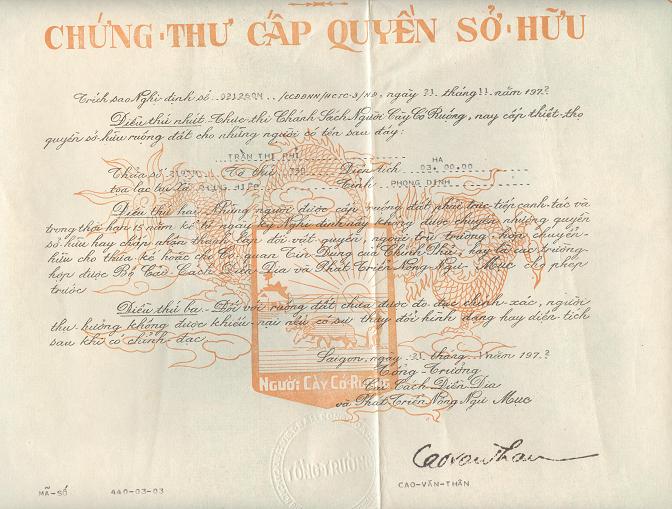 CHỨNG-THƯ CẤP QUYỀN SỞ-HỮU
Trích sao Nghị-định số /CCĐĐNN/HCTC-3/NĐ, ngày tháng 11 năm 197
Điều thứ nhứt.- Thực-thi Chánh Sách Người Cày Có Ruộng, nay cấp thiệt-thọ
quyền sở-hữu ruộng đất cho những người có tên sau đây:
TRẦN THỊ PHI HA
Thửa số Tờ thứ Diện Tích 03.00.00
tọa lạc tại Xã HIỆP Tỉnh PHONG DINH
Điều thứ hai.- Những người được cấp ruộng đất phải trực tiếp canh-tác và
trong thời hạn 15 năm kể từ ngày ký Nghị định này không được chuyển nhượng quyền
sở-hữu hay chấp nhận thành lập đối vật quyền, ngoại trừ trường-hợp chuyển-
hữu cho thừa kế hoặc cho Cơ-quan Tín Dụng của Chính Phủ, hay là các trường-
hợp được Bộ Cải Cách Điền Địa và Phát Triển Nông Ngư Mục cho phép
trước.
Điều thứ ba.- Đối với ruộng đất chưa được đo đạc chính-xác, người
thụ-hưởng không được khiếu-nại nếu có sự thay đổi hình dáng hay diện-tích
sau khi có chỉnh-đạc.
Saigon, ngày tháng năm 197
Tổng-Trưởng
Cải Cách Điền-Địa
và Phát Triển Nông Ngư Mục
NGƯỜI CÀY CÓ RUỘNG
TỔNG TRƯỞNG
Caovanthan
MÃ-SỐ 440-03-03 CAO-VĂN-THÂN